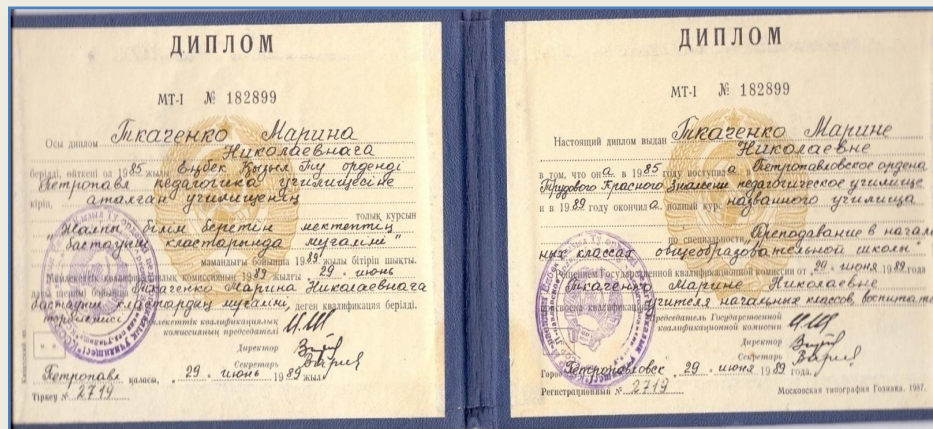 ДИПЛОМ
МТ-I № 182899
Осы диплом Ткаченко Марина
Николаевнаға
берілді, өйткені ол 1985 жылы Еңбек Қызыл Ту орденді
Петропавл педагогика училищесіне
кіріп, аталған училищенің
толық курсын
"Жалпы білім беретін мектептің
бастауыш кластарында мұғалімі"
мамандығы бойынша 1989 жылы бітіріп шықты.
Мемлекеттік квалификациялық комиссияның 1989 жылғы „29" июнь
Ткаченко Марина Николаевнаға
бастауыш кластардың мұғалімі, деген квалификация берілді.
тәрбиешісі
Мемлекеттік квалификациялық
комиссияның председателі
Директор
Секретарь
Петропавл қаласы, „29" июнь 1989 жыл
Тіркеу № 2719
ДИПЛОМ
МТ-I № 182899
Настоящий диплом выдан Ткаченко Марине
Николаевне
в том, что она в 1985 году поступила в Петропавловское ордена
Трудового Красного Знамени педагогическое училище
и в 1989 году окончила полный курс названного училища
по специальности „Преподавание в началь
ных классах общеобразовательной школы"
Решением Государственной квалификационной комиссии от „29" июня 1989 года
Ткаченко Марине Николаевне
присвоена квалификация учителя начальных классов, воспитате
Председатель Государственной
квалификационной комиссии
Директор
Секретарь
Город Петропавловск „29" июня 1989 года.
Регистрационный № 2719
Московская типография Гознака. 1987.